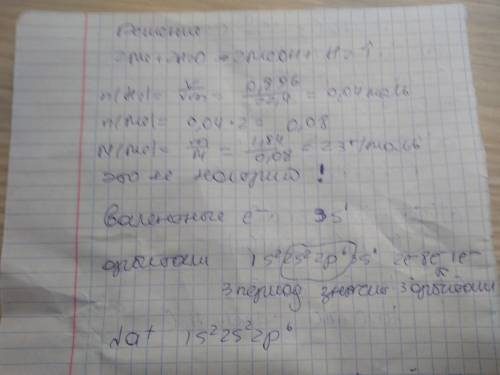 Решение
2Me + 2H2O = 2MeOH + H2↑
n(H2) = V/Vm = 0,896/22,4 = 0,04 моль
n(Me) = 0,04 · 2 = 0,08
M(Me) = m/n = 1,84/0,08 = 23 г/моль
это не !
Валентные e⁻ 3s¹
орбитали 1s² 2s² 2p⁶ 3s¹ 2e⁻ 8e⁻ 1e⁻
3 период 3 орбитали
Na+ 1s² 2s² 2p⁶